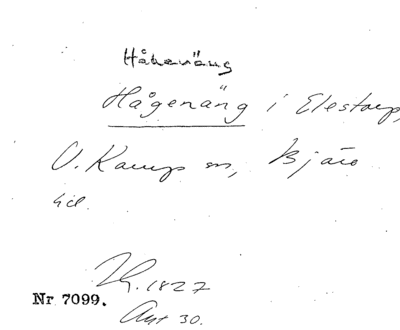 Håkenäng
Hågenäng i Elestorp,
V. Karup sn, Bjäre
hd.
Lh. 1827
Nr 7099.
Akt 30.